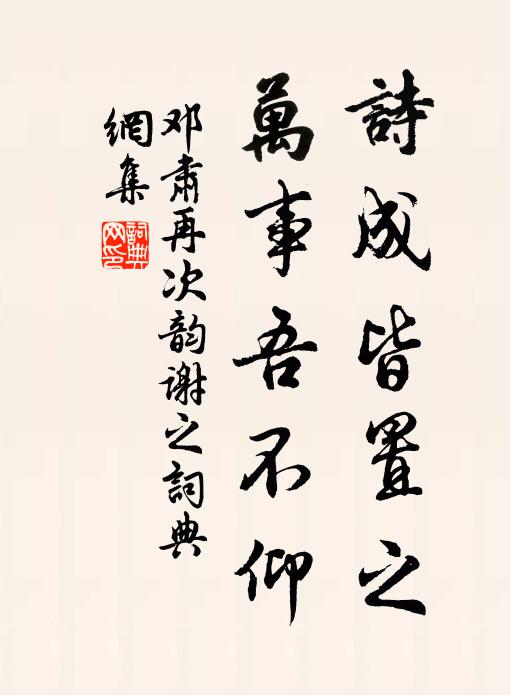 詩成皆置之
萬事吾不仰
邓肅再次韵谢之詞典
網集
詞典
网印